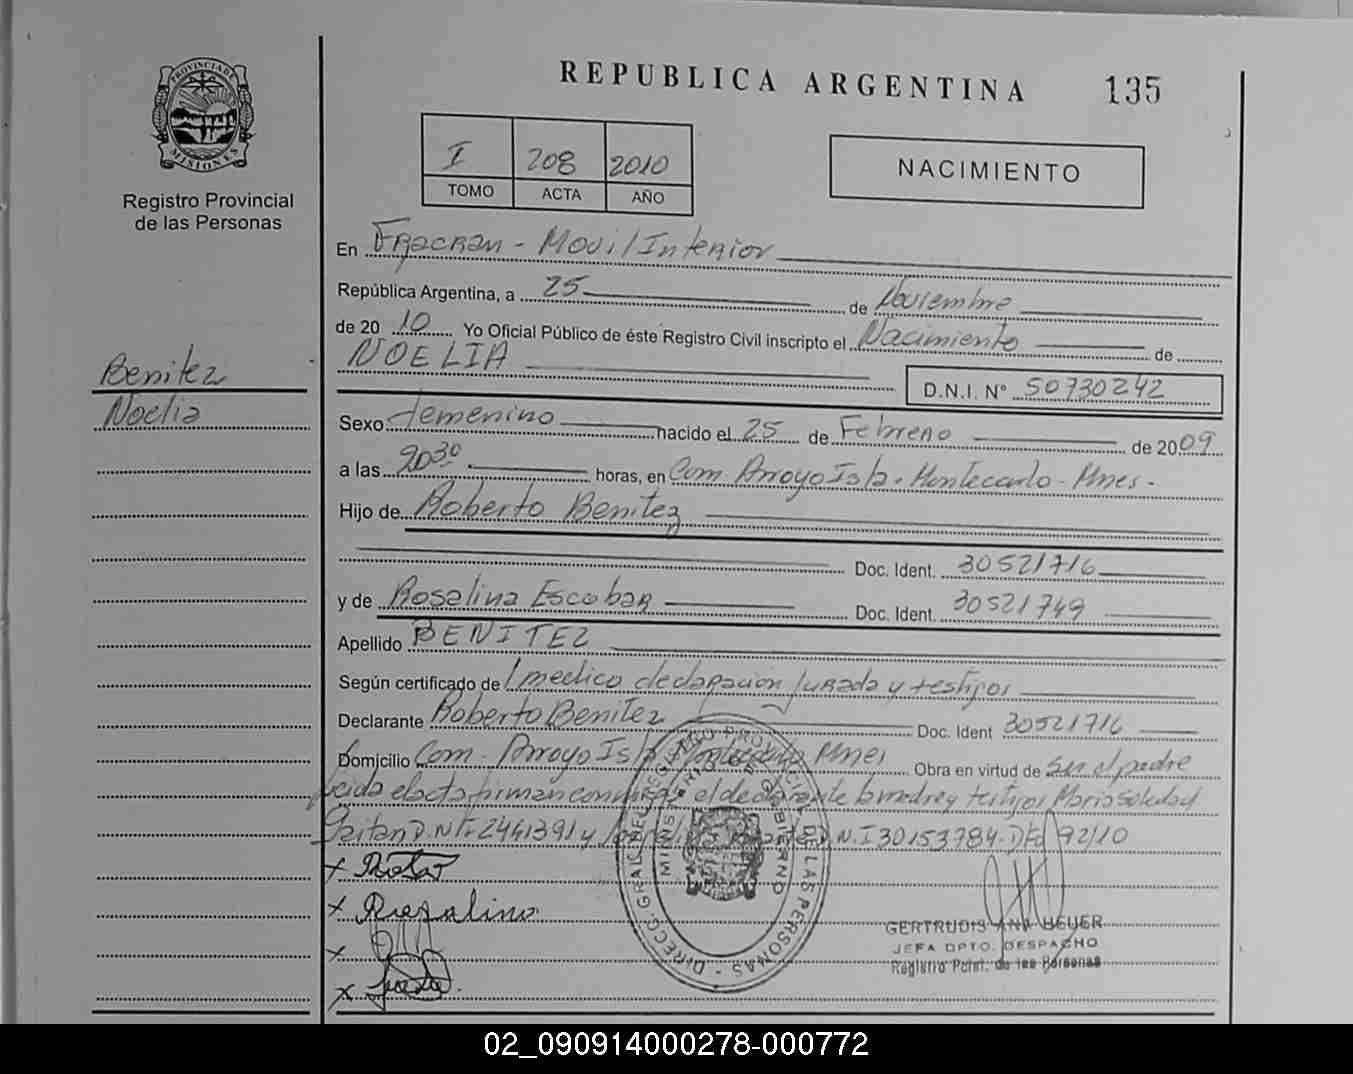 REPUBLICA ARGENTINA 135
PROVINCIA DE MISIONES
Registro Provincial
de las Personas
I 208 2010
TOMO ACTA AÑO
NACIMIENTO
En Fracran - Movil Interior
República Argentina, a 25 de Noviembre
de 20 10 Yo Oficial Público de éste Registro Civil inscripto el Nacimiento de
NOELIA D.N.I. N° 50730242
Benitez
Noelia
Sexo femenino nacido el 25 de Febrero de 2009
a las 20 30 horas, en Com Arroyo Isla - Montecarlo - Mnes -
Hijo de Roberto Benitez
Doc. Ident. 30521716
y de Rosalina Escobar Doc. Ident. 30521749
Apellido BENITEZ
Según certificado de medico declaracion jurada y testigos
Declarante Roberto Benitez Doc. Ident 30521716
Domicilio Com. Arroyo Isla Montecarlo Mnes Obra en virtud de ser el padre
leida el acta firman conmigo el declarante la madre y testigos Maria Soledad
Gaitan D.N.I. 2441391 y D.N.I 30153784 - 92/10
DIRECC. GRAL. DEL REGISTRO PROVINCIAL DE LAS PERSONAS
MINISTERIO DE GOBIERNO
GERTRUDIS ANA HEUER
JEFA DPTO. DESPACHO
Registro Pcial. de las Personas
02_090914000278-000772